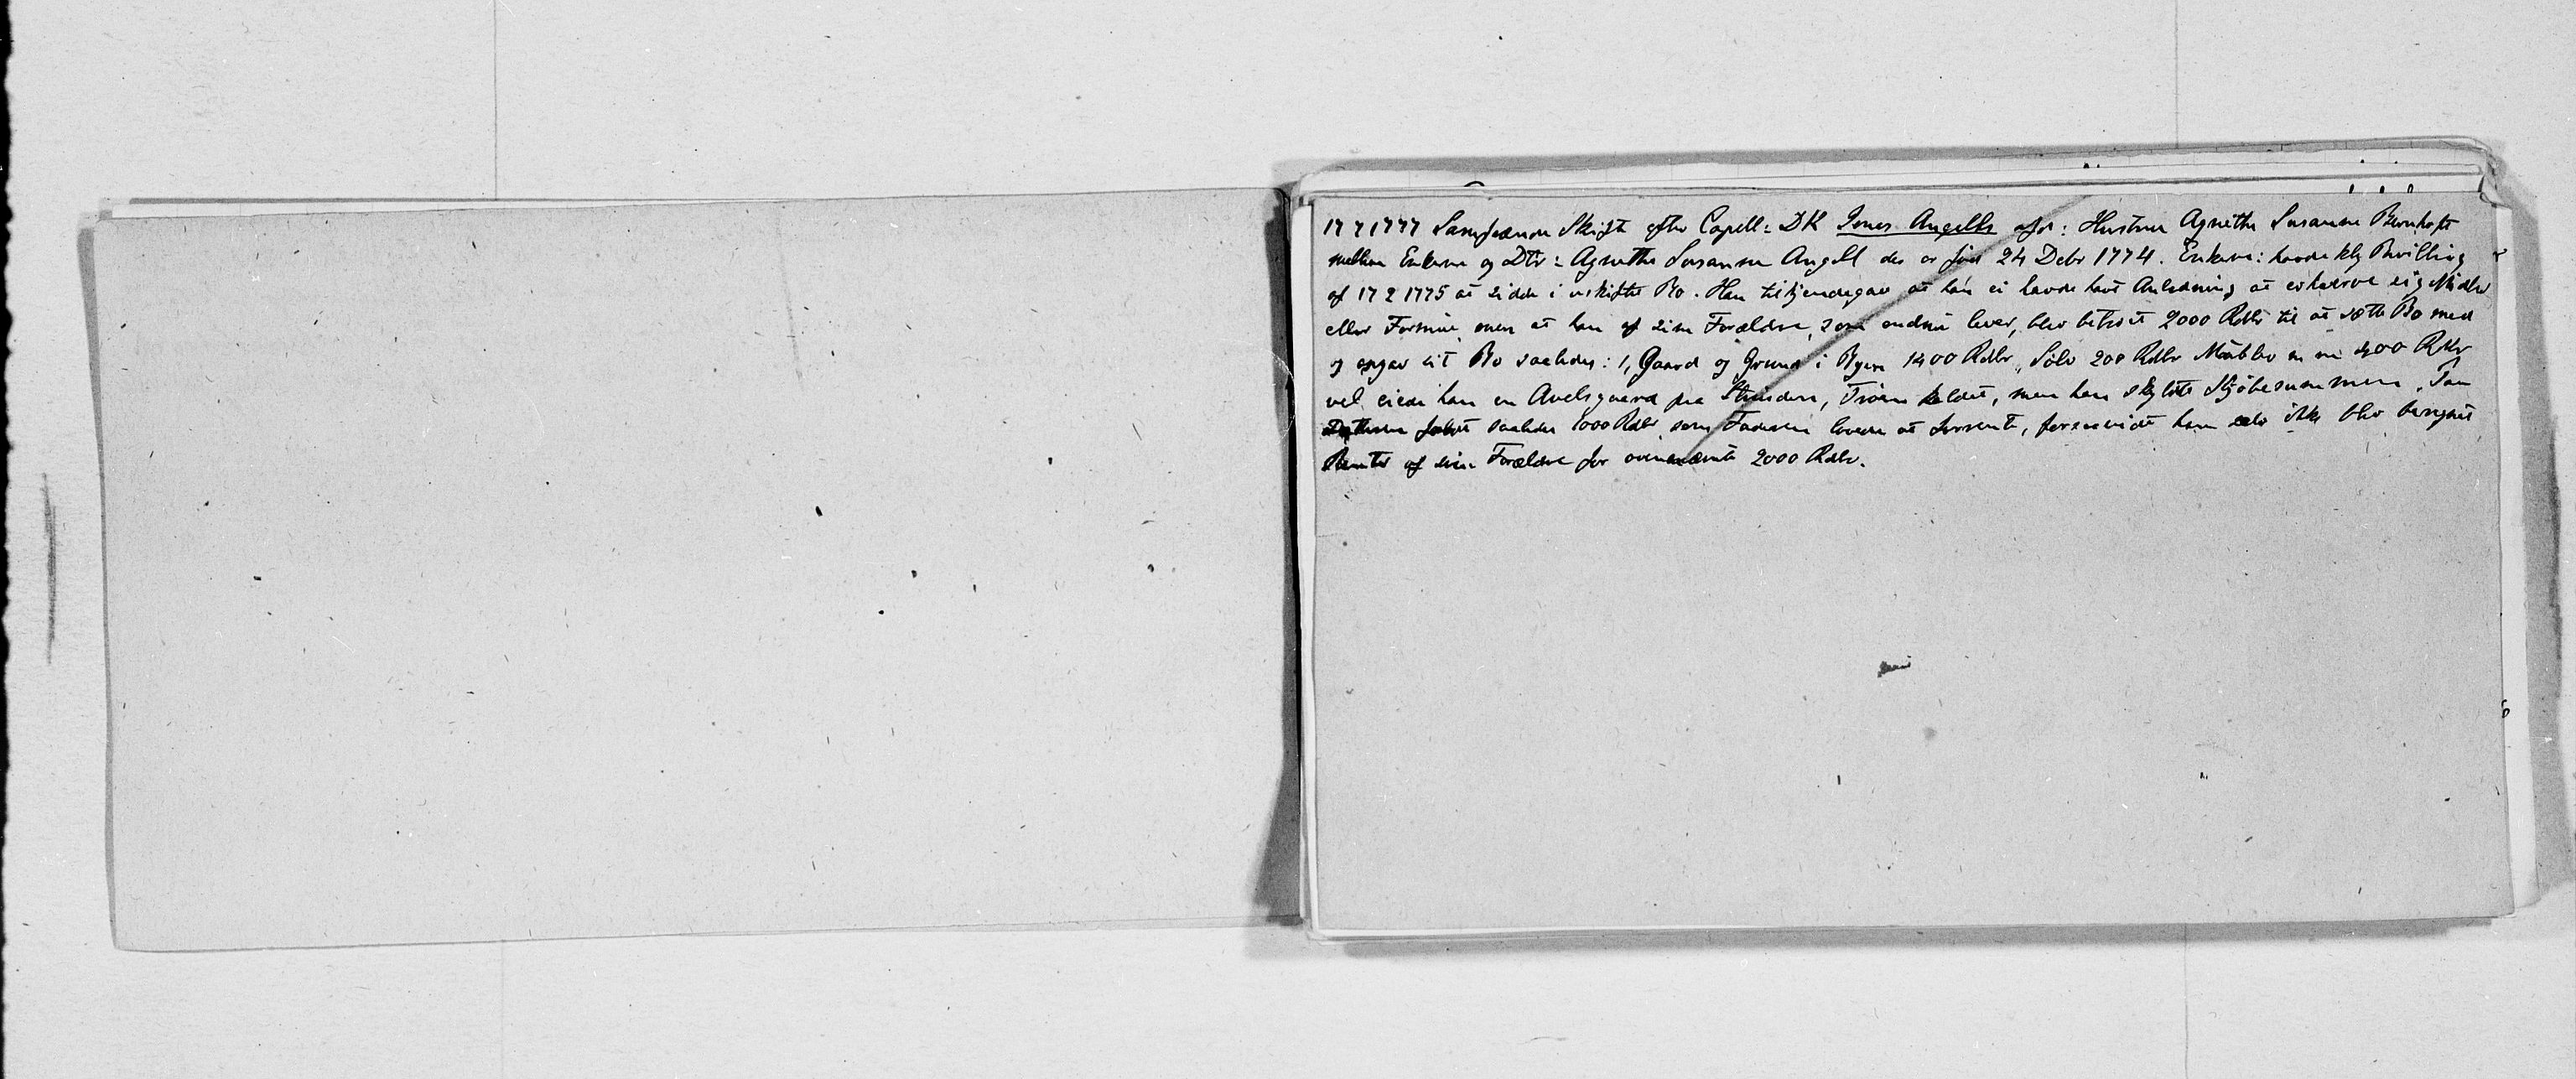 17 7 1777 Samfrænde Skifte efter Capell: DK Jonas Angells afd: Hustrue Agnethe Susanne Bernhoft
mellem Enkem og Dtr: Agnethe Susanne Angell der er fød 24 Debr 1774. Enkem: havde klg Bevilling
af 17 2 1775 at sidde i uskiftet Bo. Han tilkjendegav at han ei havde havt Anledning at erhverve sig Midler
eller Formue, men at han af sine Forældre, som endnu lever, blev betroet 2000 Rdlr til at sætte Bo med
og opgav sit Bo saaledes: 1, Gaard og Grund i Byen 1400 Rdlr, Sølv 200 Rdlr Møbler m m 400 Rdlr
vel eiede han en Avelsgaard paa Strinden, Tröen kaldet, men han skyldte Kjøbesummen. Paa
Datteren faldt saaledes 1000 Rdlr som Faderen lovede at forrente, forsaavidt han selv ikke blev beregnet
Renter af sine Forældre for ovennævnte 2000 Rdlr.